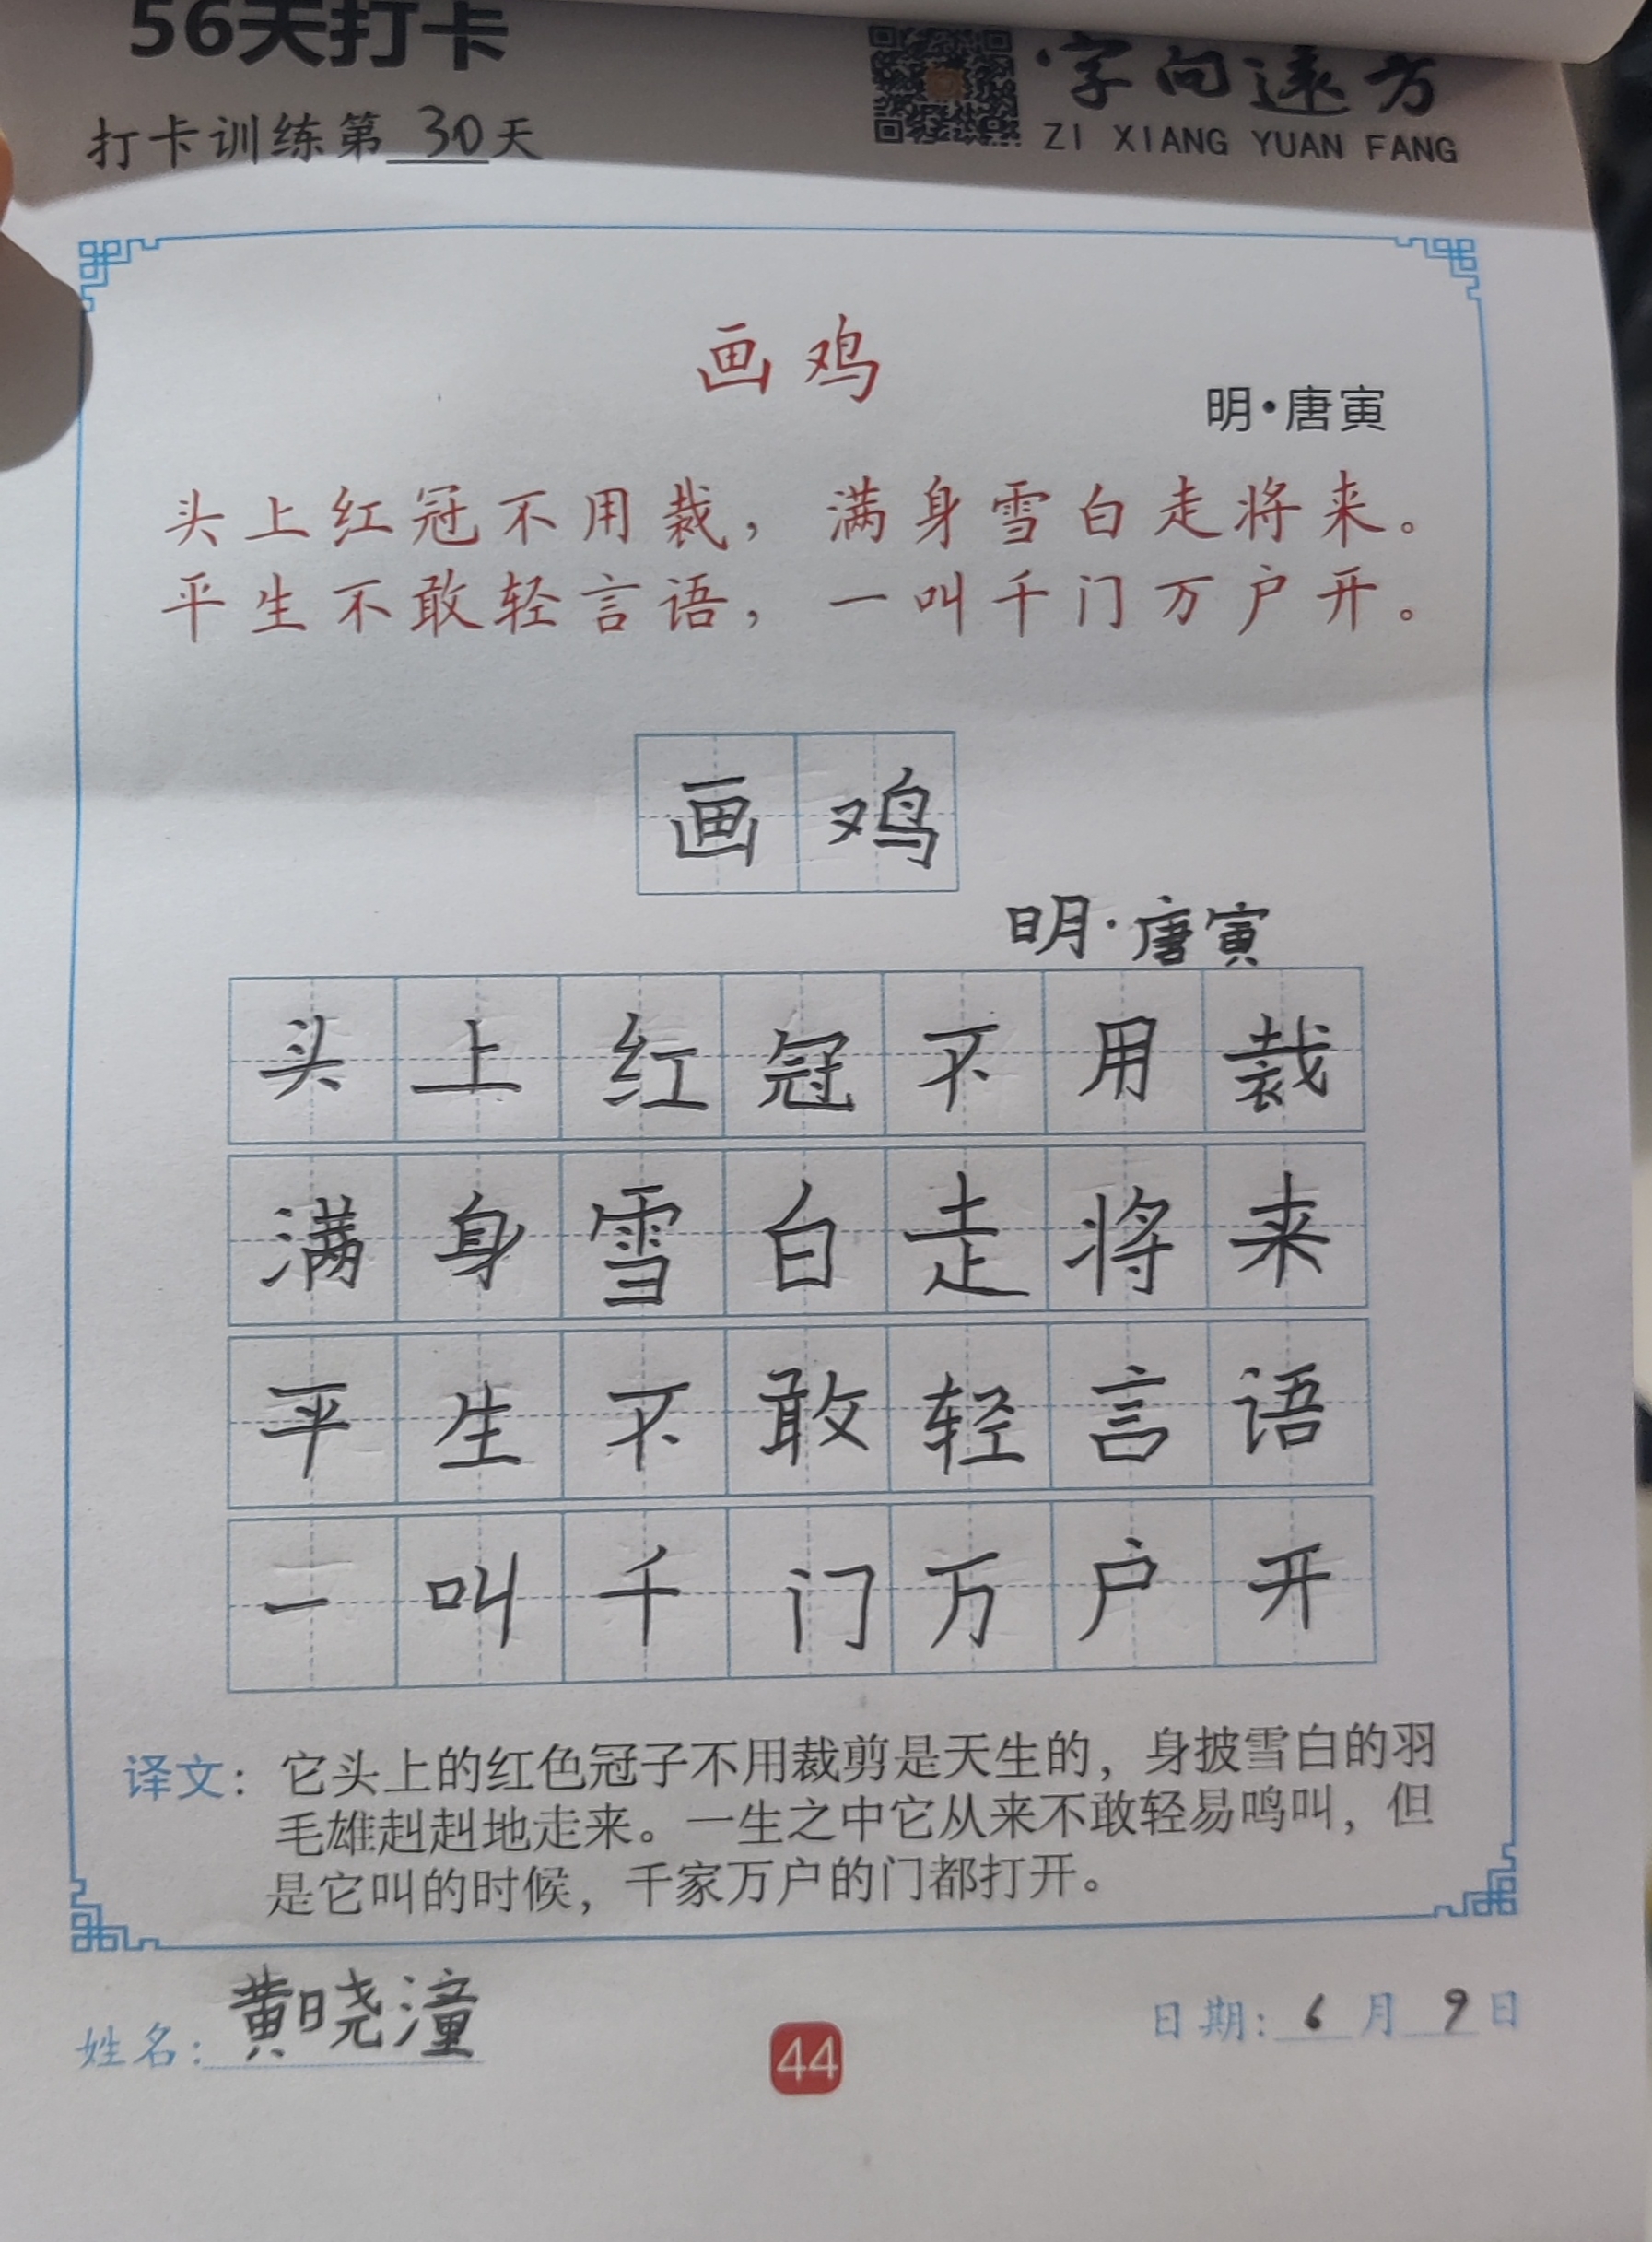 56天打卡
打卡训练第30天
字向远方
ZI XIANG YUAN FANG
画鸡
明·唐寅
头上红冠不用裁，满身雪白走将来。
平生不敢轻言语，一叫千门万户开。
画鸡
明·唐寅
头上红冠不用裁
满身雪白走将来
平生不敢轻言语
一叫千门万户开
译文：它头上的红色冠子不用裁剪是天生的，身披雪白的羽
毛雄赳赳地走来。一生之中它从来不敢轻易鸣叫，但
是它叫的时候，千家万户的门都打开。
姓名：黄晓潼
日期：6月9日
44